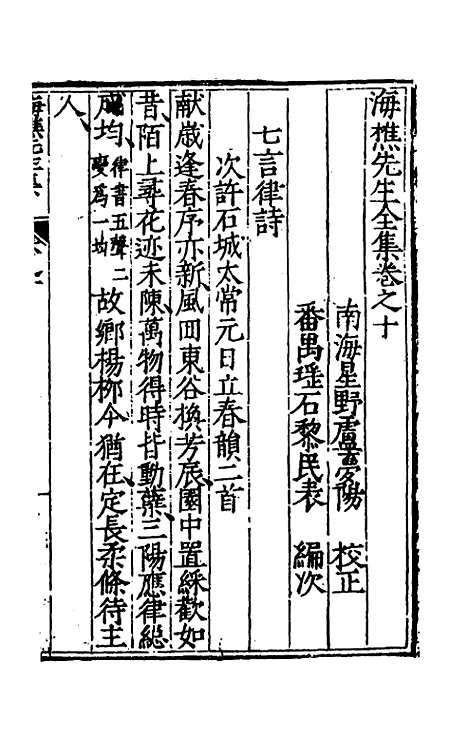 海樵先生全集卷之十
南海星野盧夢陽 校正
番禺瑤石黎民表 編次
七言律詩
次許石城太常元日立春韻二首
献歲逢春序亦新風回東谷換芳辰園中置綵歡如
昔陌上尋花迹未陳萬物得時皆動蘂三陽應律總
成均律書五聲二變爲一均故鄉楊柳今猶在定長柔條待主
人